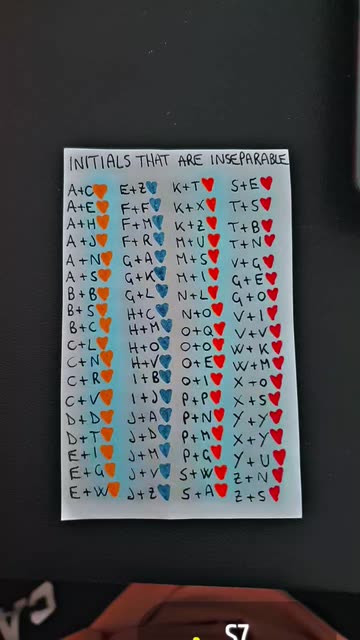 INITIALS THAT ARE INSEPARABLE
A+C
A+E
A+H
A+J
A+N
A+S
B+B
B+S
B+C
C+L
C+N
C+R
C+V
D+D
D+T
E+I
E+G
E+W
E+Z
F+F
F+M
F+R
G+A
G+K
G+L
H+C
H+M
H+O
H+V
I+B
I+J
J+A
J+D
J+M
J+V
J+Z
K+T
K+X
K+Z
M+U
M+S
M+I
N+L
N+O
O+Q
O+O
O+E
O+I
P+P
P+N
P+M
P+G
S+W
S+A
S+E
T+S
T+B
T+N
V+G
G+E
G+O
V+I
V+V
W+K
W+M
X+O
X+Y
Y+Y
Y+U
Z+N
Z+S
S7